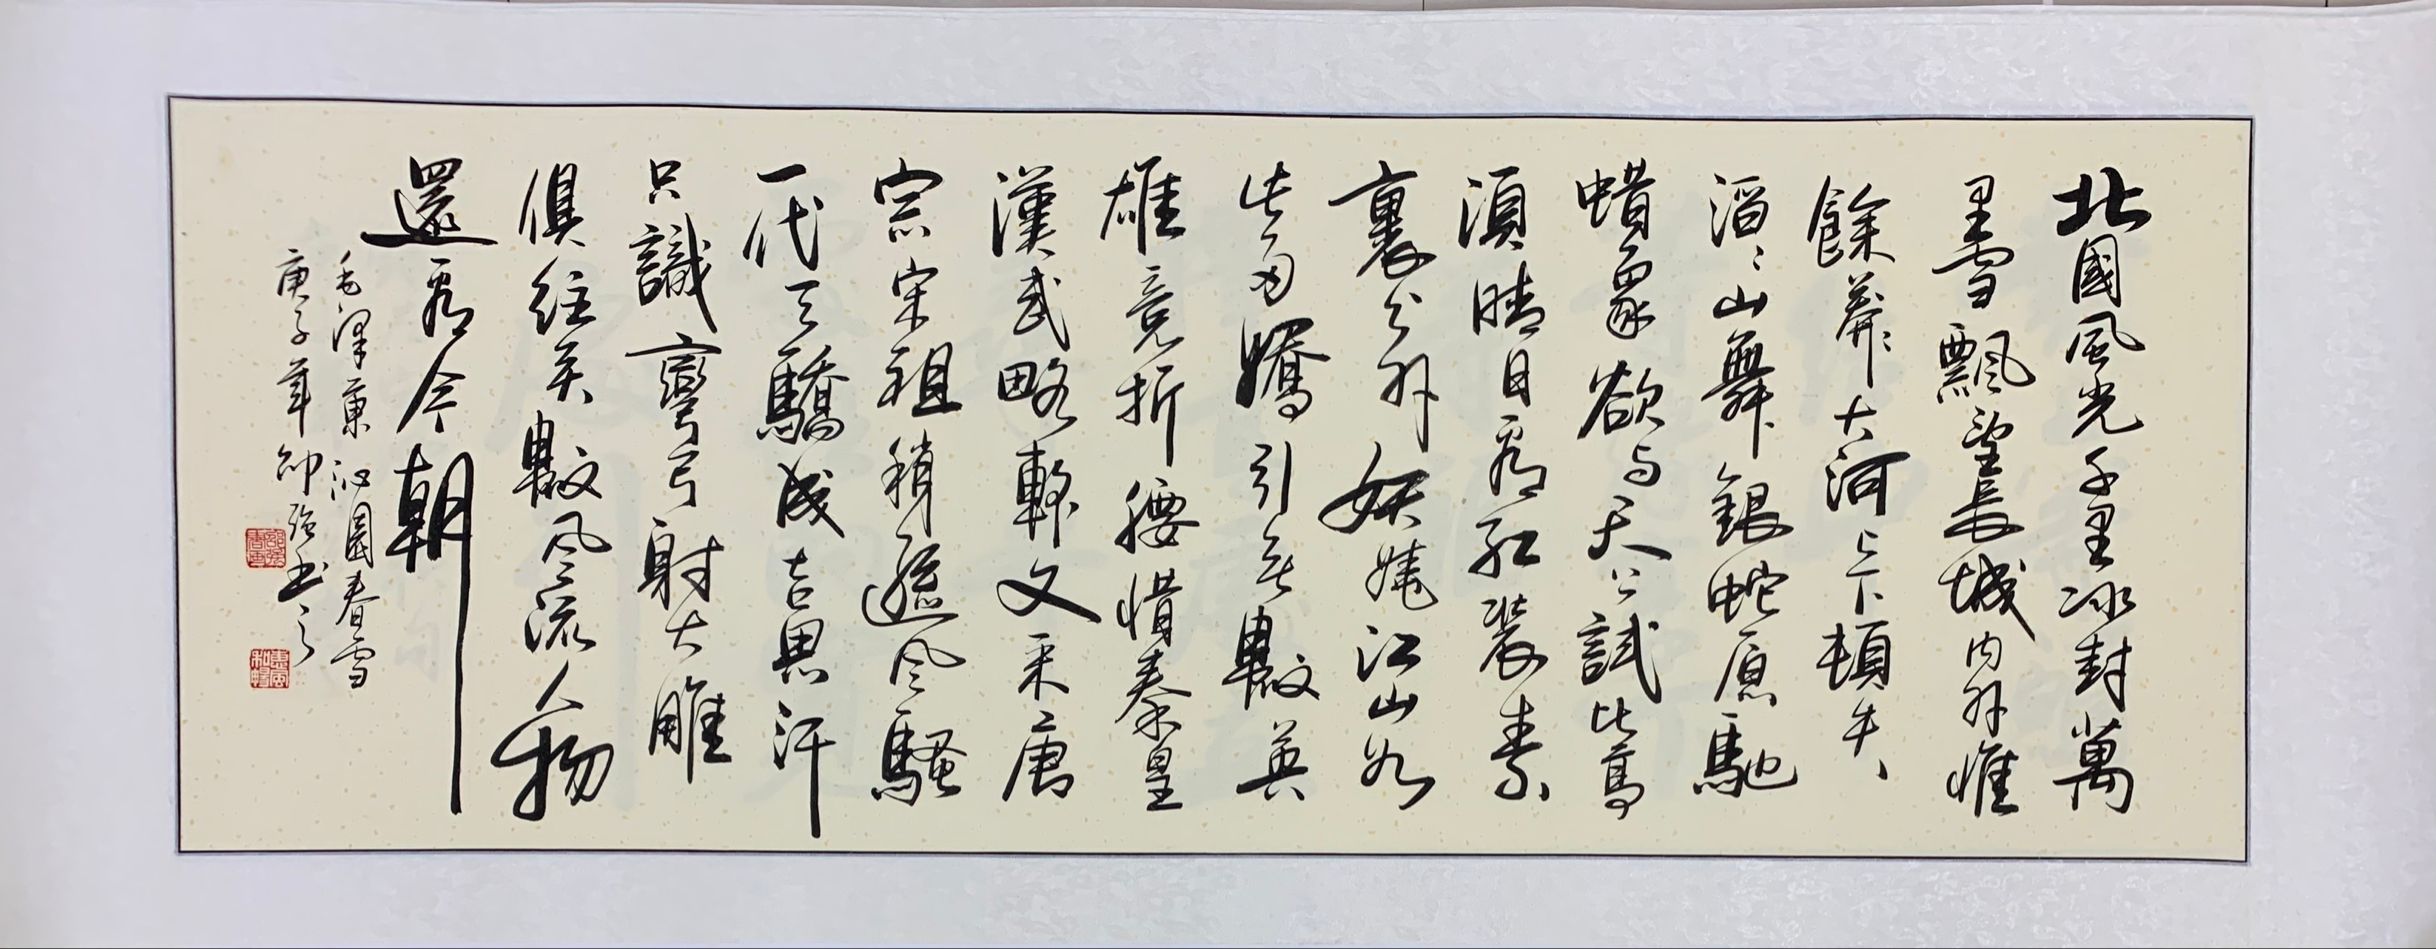 北國風光千里冰封萬
里雪飄望長城内外惟
餘莽〻大河上下頓失
滔〻山舞銀蛇原馳
蜡象欲与天公試比高
須晴日看紅裝素
裹分外妖嬈江山如
此多嬌引无數英
雄竞折腰惜秦皇
漢武略輸文采唐
宗宋祖稍遜风騷
一代天驕成吉思汗
只識彎弓射大雕
俱往矣數风流人物
還看今朝
毛澤東沁園春雪
庚子年邵强书之
惠風和暢